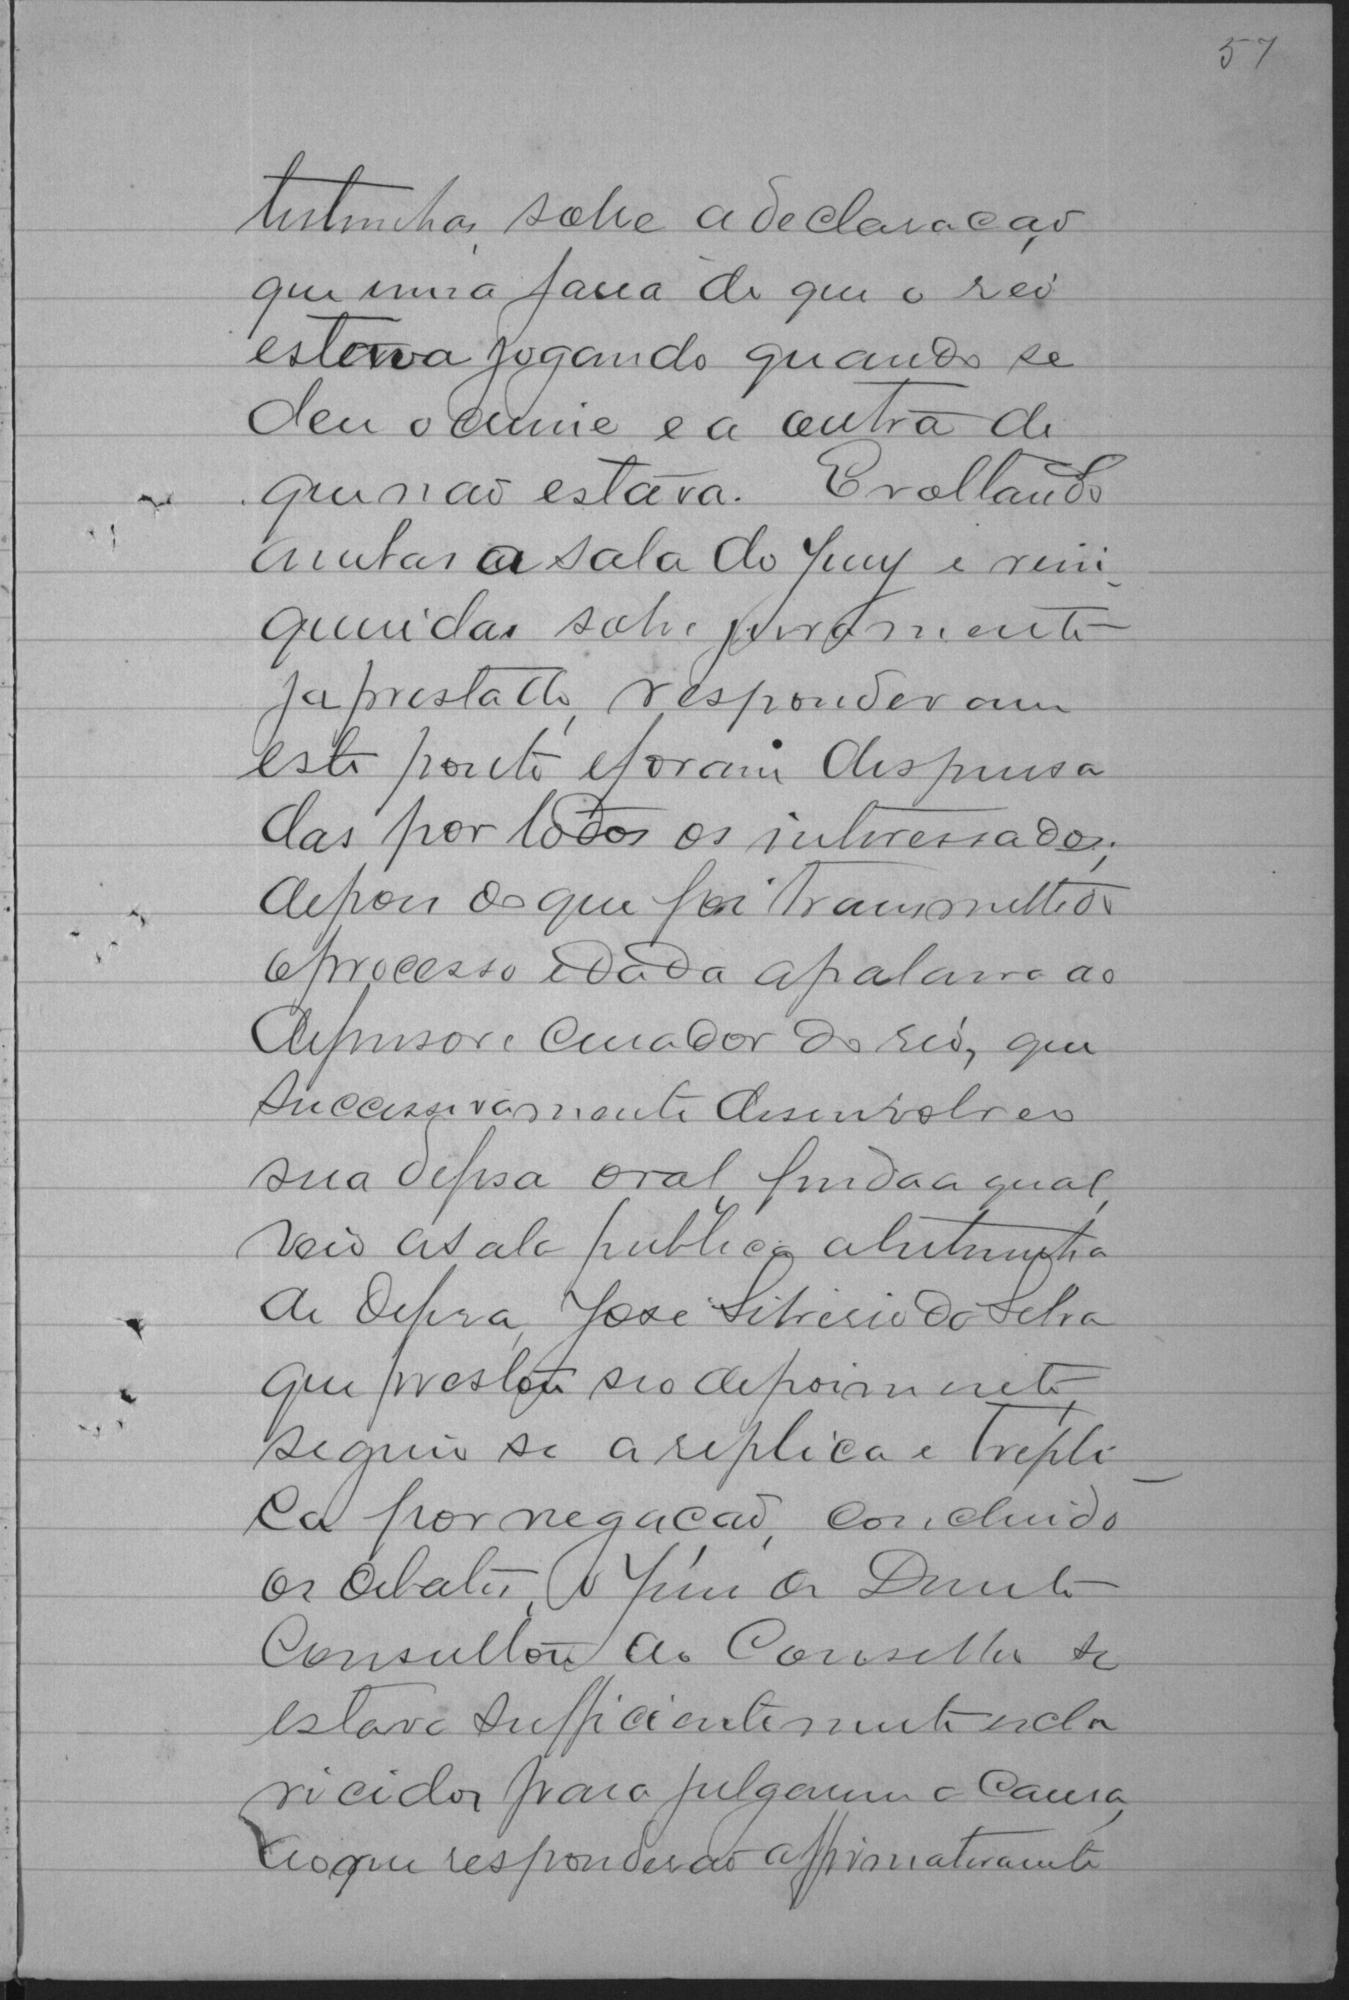 57
testemunhas, sobre a declaração
que uma fazia de que o reó
estava jogando quando se
deu o crime e a outra de
que não estava. E voltando
ambas a sala do Jury e rein-
queridas sobre juramento
ja prestado, responderam
este ponto e foram dispensa
das por todos os interessados;
depois do que foi transmettido
o processo e dada a palavra ao
defensor e curador do reó, que
successivamente desenvolveo
sua defesa oral, finda a qual,
veio a sala publica a testemunha
de defesa, José Silverio da Silva
que prestou seo depoimento,
seguio se a replica e trepli-
ca por negação, concluido
os debates, o Juiz de Direito
Consultou ao Conselho se
estava sufficientemente escla
recidos para julgarem a Causa,
ao que responderão affirmativamente